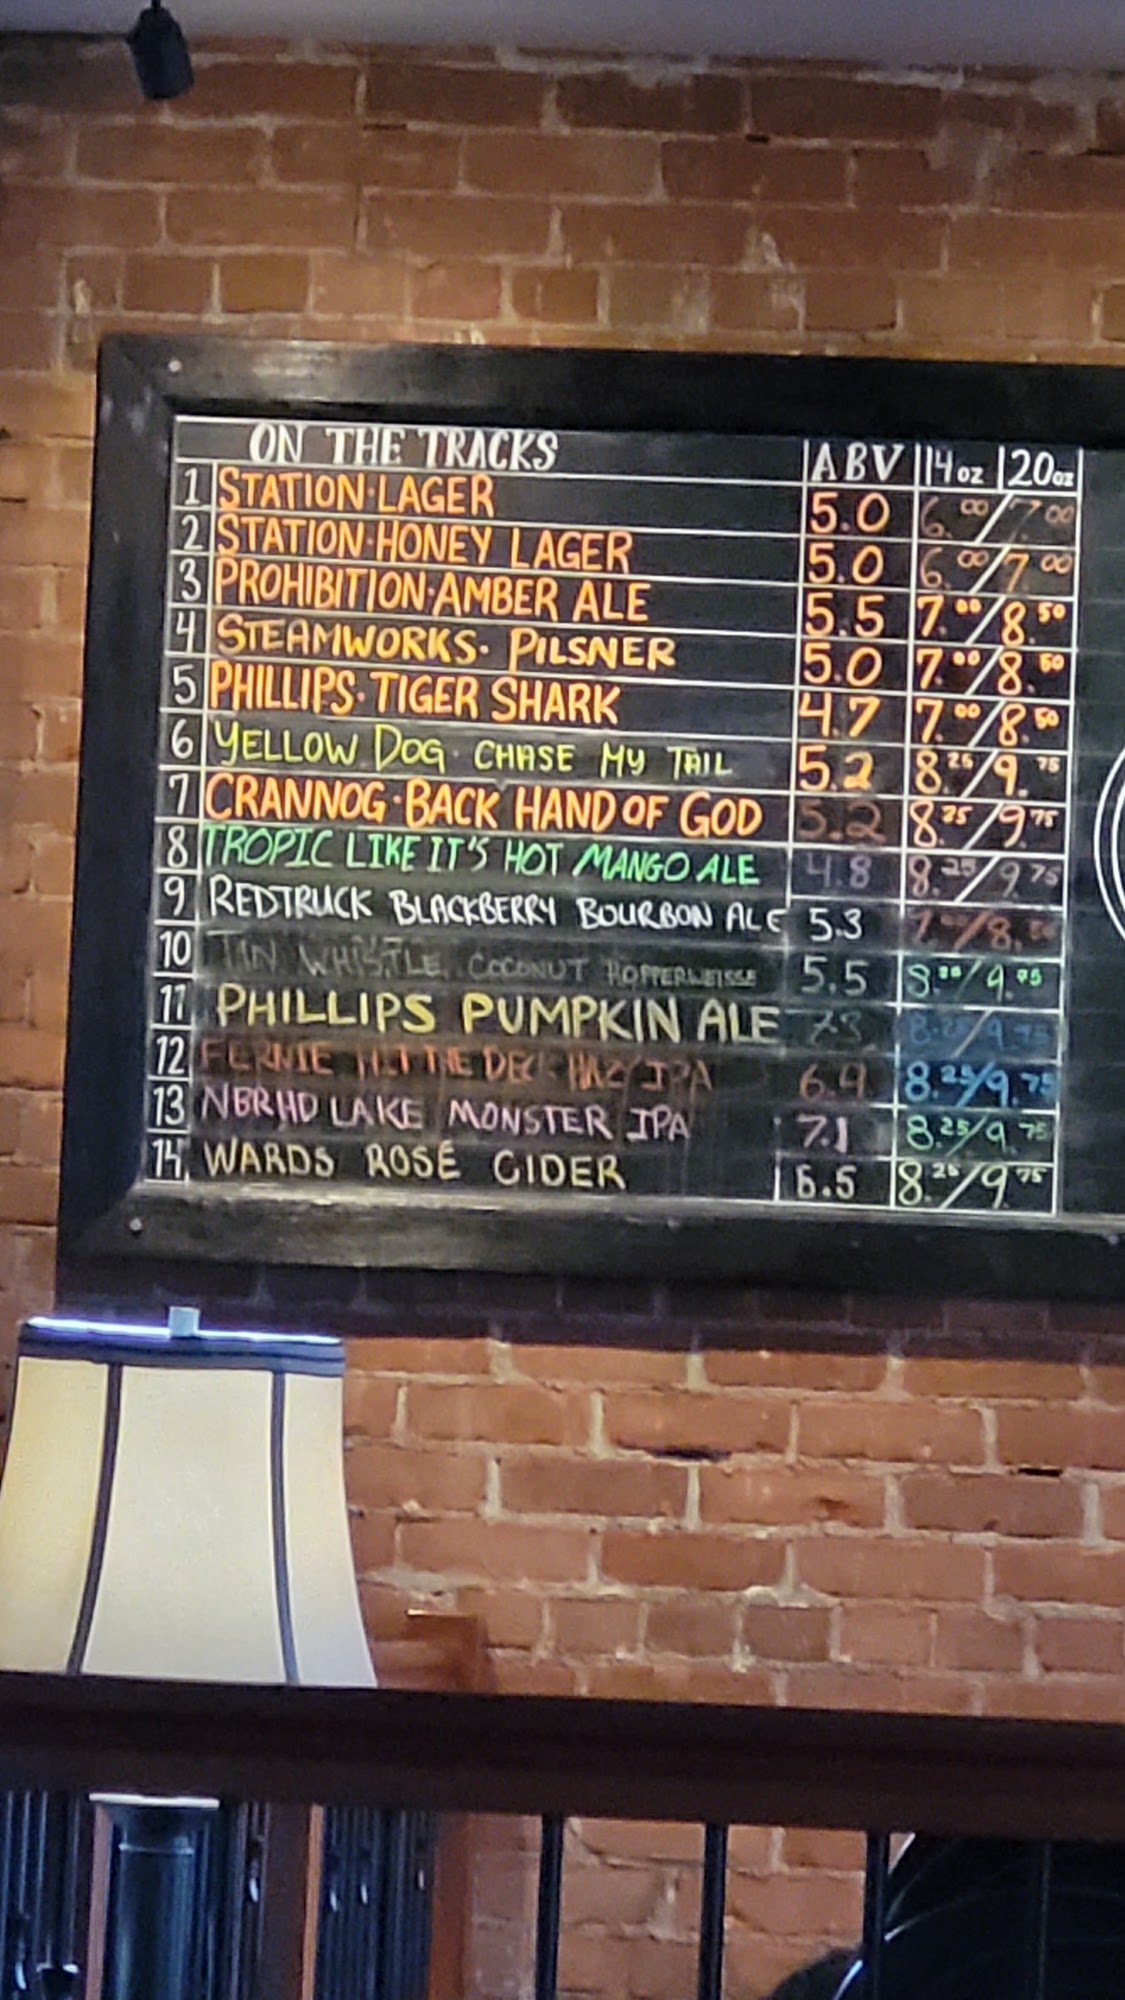 ON THE TRACKS ABV 14oz 20oz
1 STATION·LAGER 5.0 6.00/7.00
2 STATION·HONEY LAGER 5.0 6.00/7.00
3 PROHIBITION·AMBER ALE 5.5 7.00/8.50
4 STEAMWORKS· PILSNER 5.0 7.00/8.50
5 PHILLIPS·TIGER SHARK 4.7 7.00/8.50
6 YELLOW DOG· CHASE MY TAIL 5.2 8.25/9.75
7 CRANNOG·BACK HAND OF GOD 5.2 8.25/9.75
8 TROPIC LIKE IT'S HOT MANGO ALE 4.8 8.25/9.75
9 REDTRUCK BLACKBERRY BOURBON ALE 5.3 7.00/8.50
10 TIN WHISTLE COCONUT HOPFERWEISSE 5.5 9.75
11 PHILLIPS PUMPKIN ALE 7.3 8.25/9.75
12 FERNIE HIT THE DECK HAZY IPA 6.9 8.25/9.75
13 NBRHD LAKE MONSTER IPA 7.1 8.25/9.75
14 WARDS ROSÉ CIDER 6.5 8.25/9.75